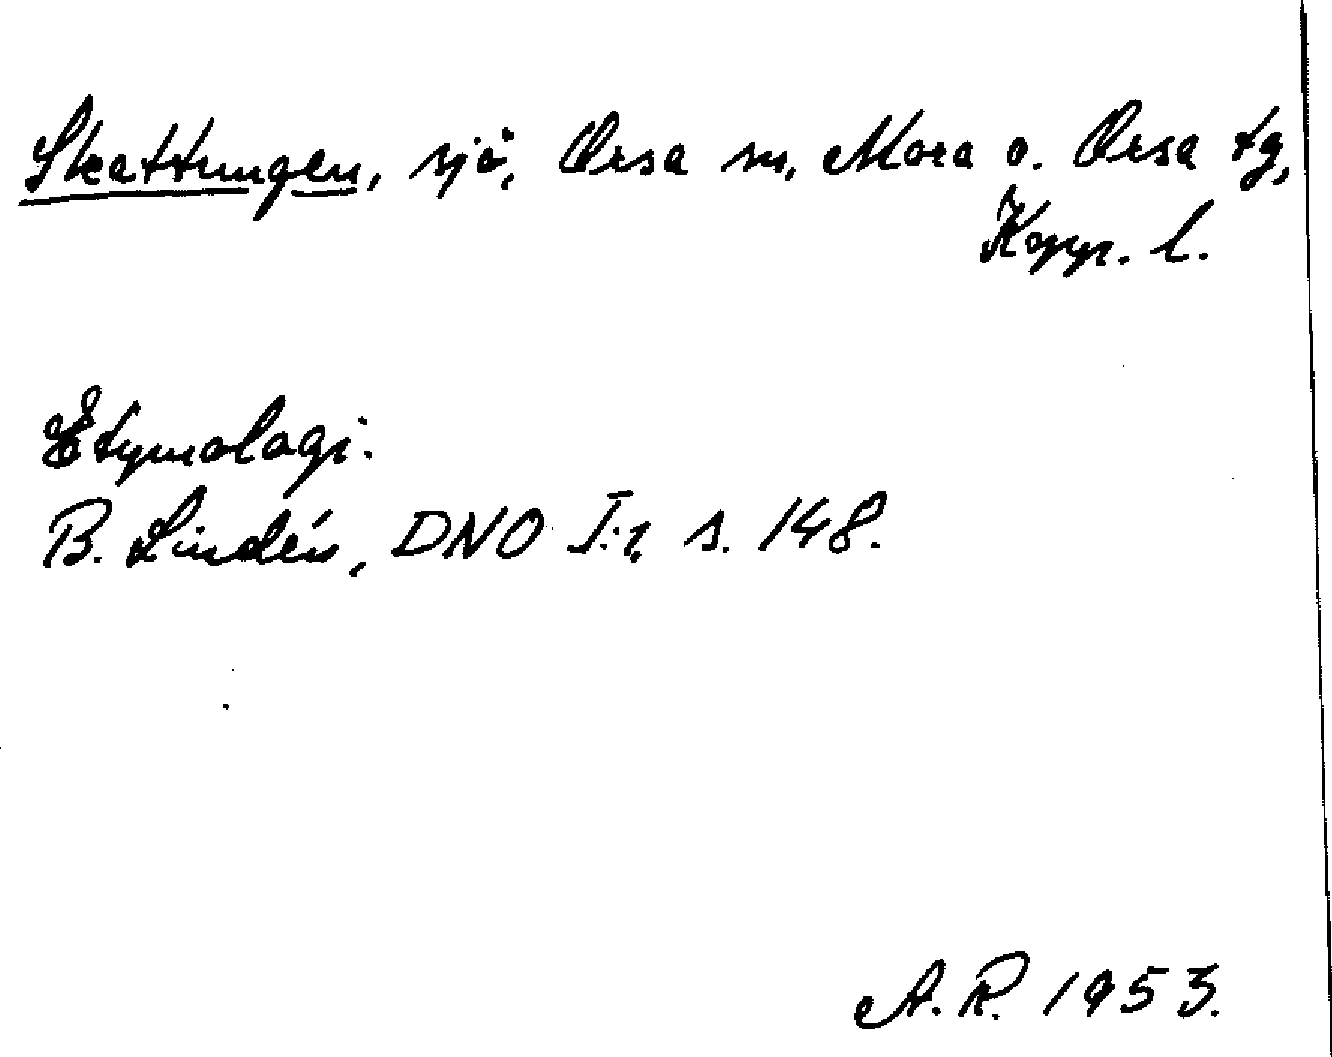 Skattungen, sjö, Orsa sn, Mora o. Orsa tg,
Kopp. l.
Etymologi.
B. Lindén, DNO I:1, s. 148.
A. R. 1953.